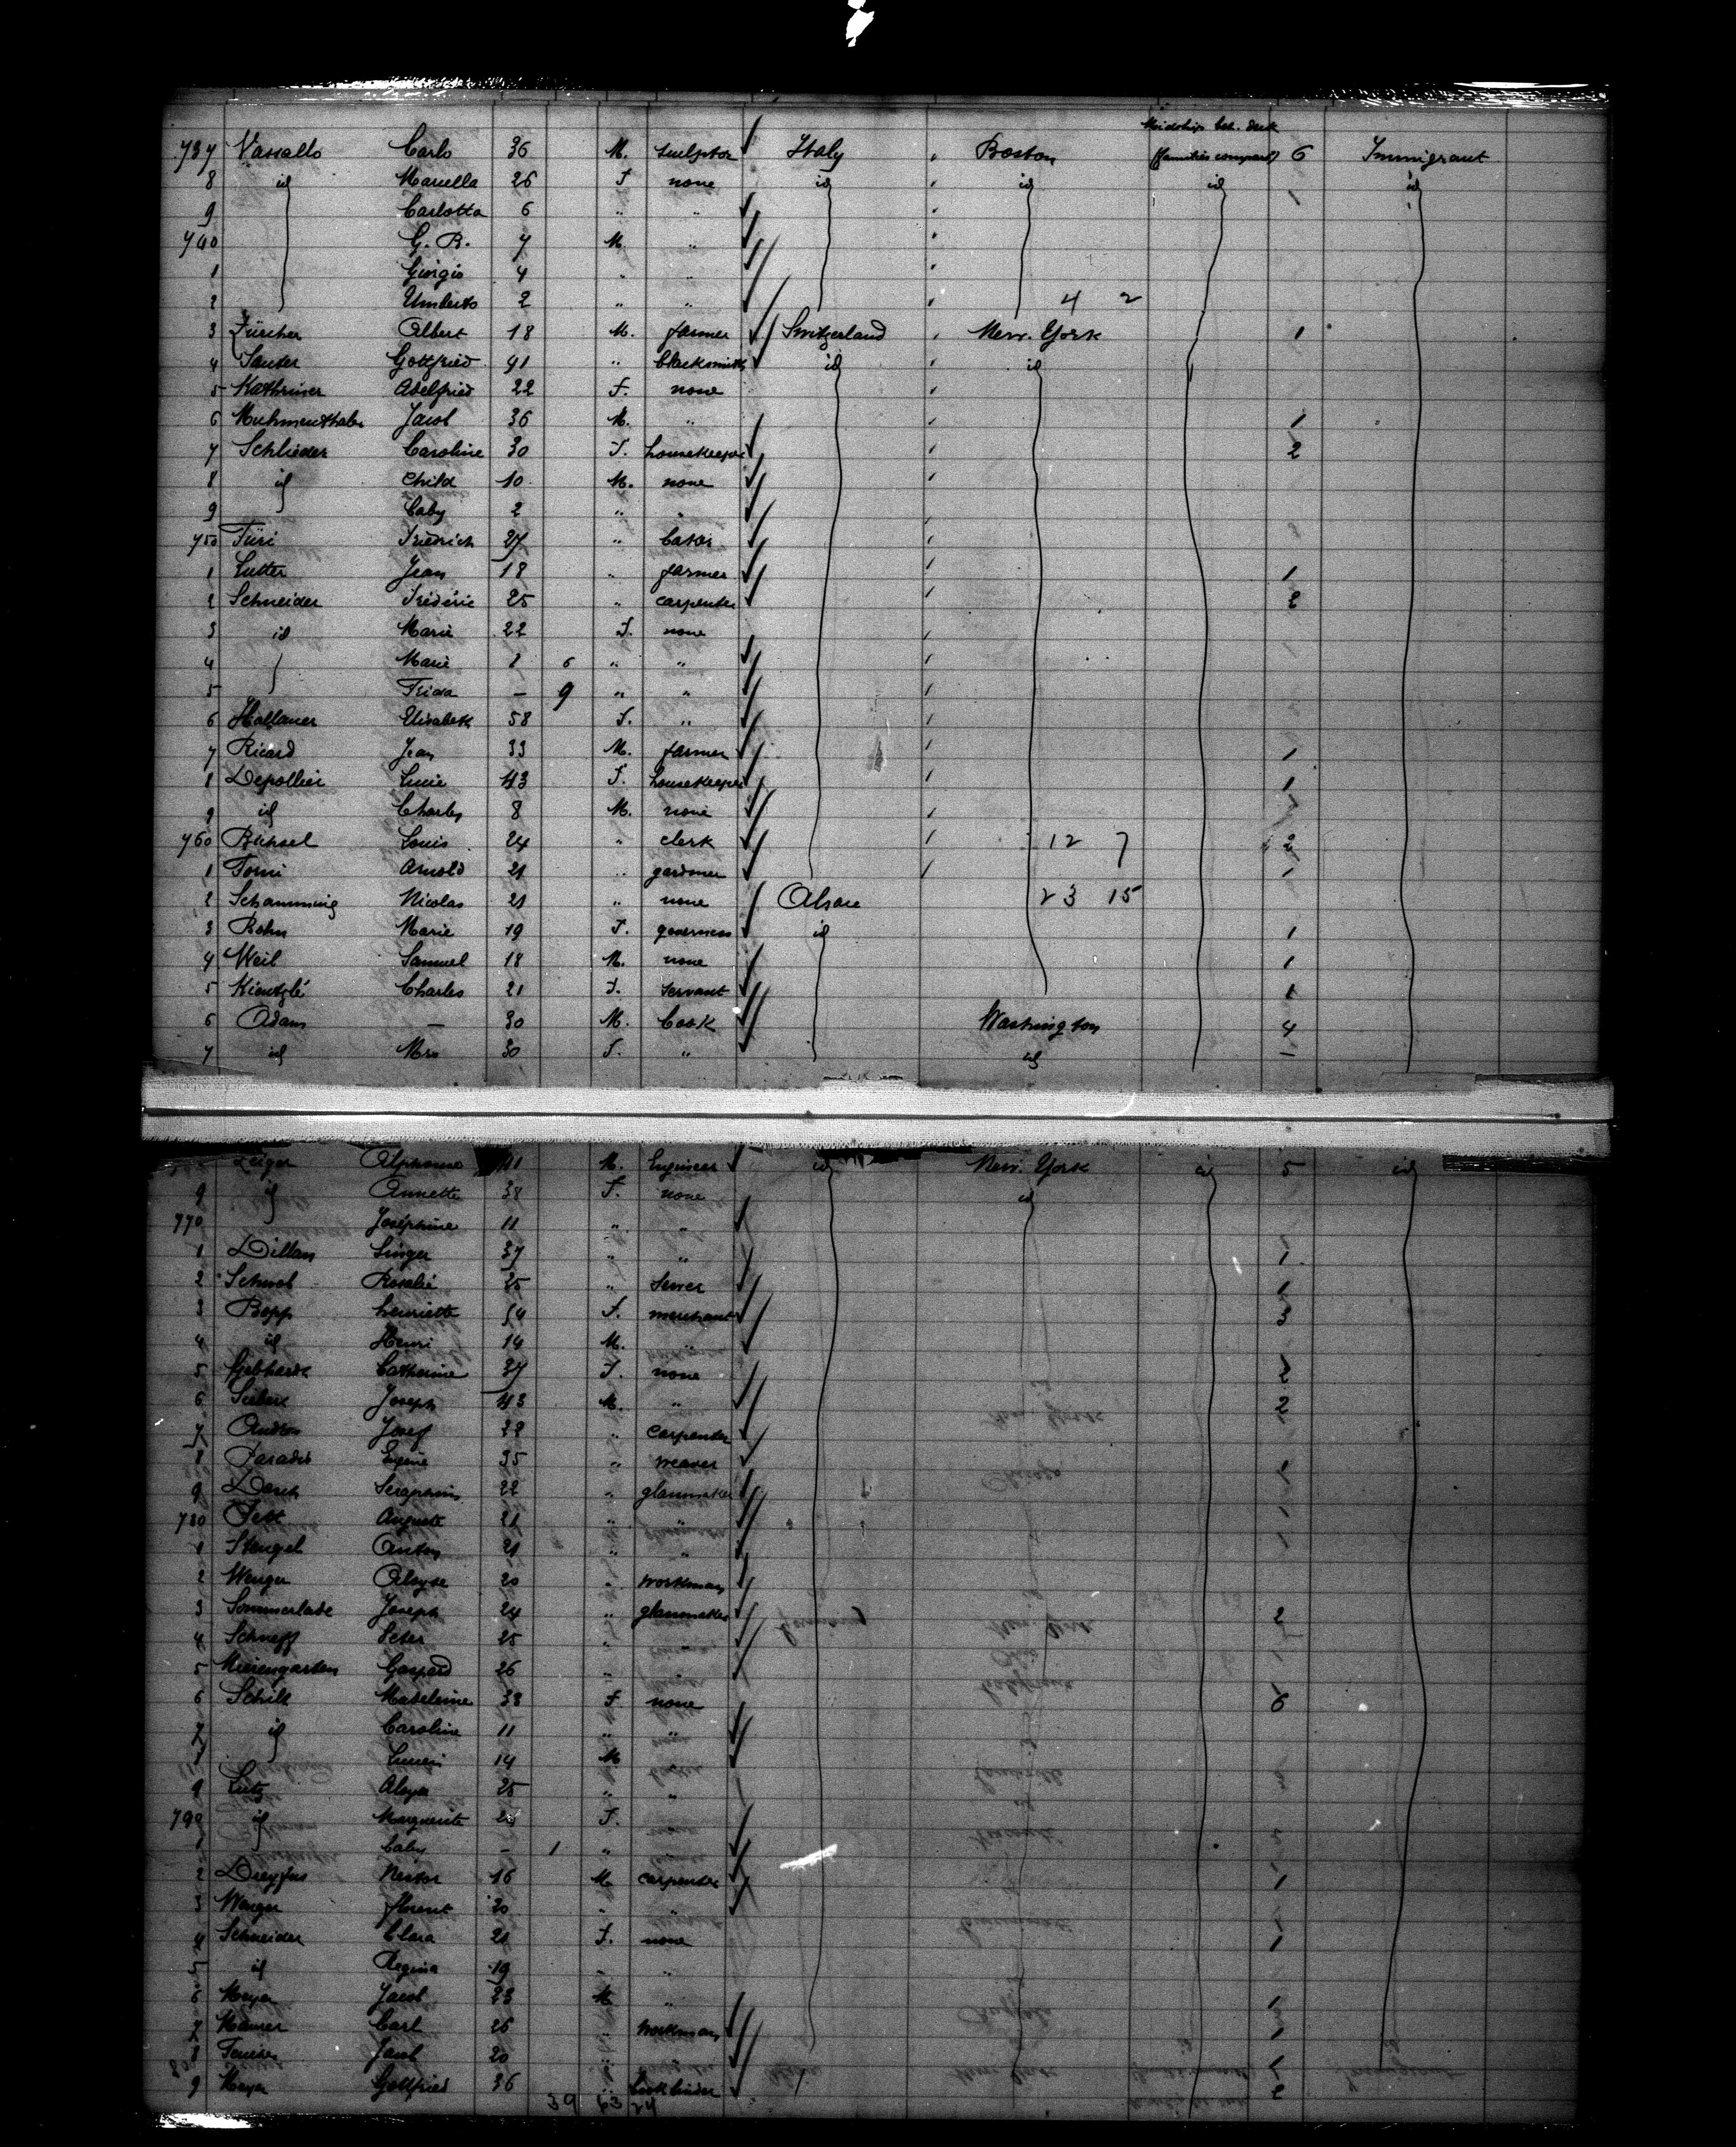 Midship bet. deck
737 Vassallo Carlo 36 M. sculptor Italy Boston (families compart) 6 Immigrant
8 id Mariella 26 F none id id id 1 id
9 Carlotta 6 " "
740 G. B. 7 M. "
1 Giorgio 4 " "
2 Umberto 2 " " 4 2
3 Zürcher Albert 18 M. farmer Switzerland New. York 1
4 Sauter Gottfried 41 " blacksmith id id
5 Kathriner Adelfried 22 F. none
6 Muhmenthaler Jacob 36 M. " 1
7 Schlieder Caroline 30 F. housekeeper 2
8 id Child 10 M. none
9 baby 2 " "
750 Füri Friedrich 27 "
1 Lutter Jean 18 " farmer 1
2 Schneider Fréderic 25 " carpenter 2
3 id Marie 22 F. none
4 Marie 6 " "
5 Frida — 9 " "
6 Hallauer Elisabeth 58 F. "
7 Ricard Jean 33 M. farmer 1
8 Depollier Lucie 43 F. housekeeper 1
9 id Charles 8 M. none
760 Louis 24 " clerk 12 7 2
1 Tomi Arnold 21 " gardener
2 Schamming Nicolas 21 " none Alsace 23 15
3 Rohn Marie 19 F. governess id 1
4 Weil Samuel 18 M. none 1
5 Kientzlé Charles 21 F. servant 1
6 Adam — 30 M. Cook Washington 4
7 id Mrs 30 F. " id —
Zeiger Alphonse 41 M. Engineer id New. York id 5 id
9 id Annette 38 F. none id
770 Joséphine 11 " "
1 Dillan Singer 37 " " 1
2 Schwob Rosalie 25 " Sewer 1
3 Bopp henriette 54 F. merchant 3
4 id Henri 14 M. "
5 Gebhardt Catherine 37 F. none 2
6 Joseph 43 M. " 2
7 Josef 22 " carpenter
8 Paradis Eugène 35 " weaver
9 Seraphim 22 " glassmaker
780 Auguste 21 " "
1 Stengel Anton 21 " "
2 Wenger Aloyse 20 " workman
3 Sommerlade Joseph 24 " glassmaker 2
4 Schneff Peter 25 " "
5 Meirengarten Gaspard 26 " "
6 Schill Madeleine 38 F none 6
7 id Caroline 11 " "
8 14 M
9 Lutz Aloys 25 " "
790 id Marguerite F.
1 baby — 1 "
2 Dreyfus Nestor 16 M carpenter 1
3 Wenger florent 20 " "
4 Schneider Clara 21 F. none 1
5 id Regina 19 " "
6 Meyer Jacob 23 M " 1
7 Maurer Carl 26 " workman 1
8 Jacob 20 " "
9 Meyer Gottfried 36 " bookbinder 2
39 63 24